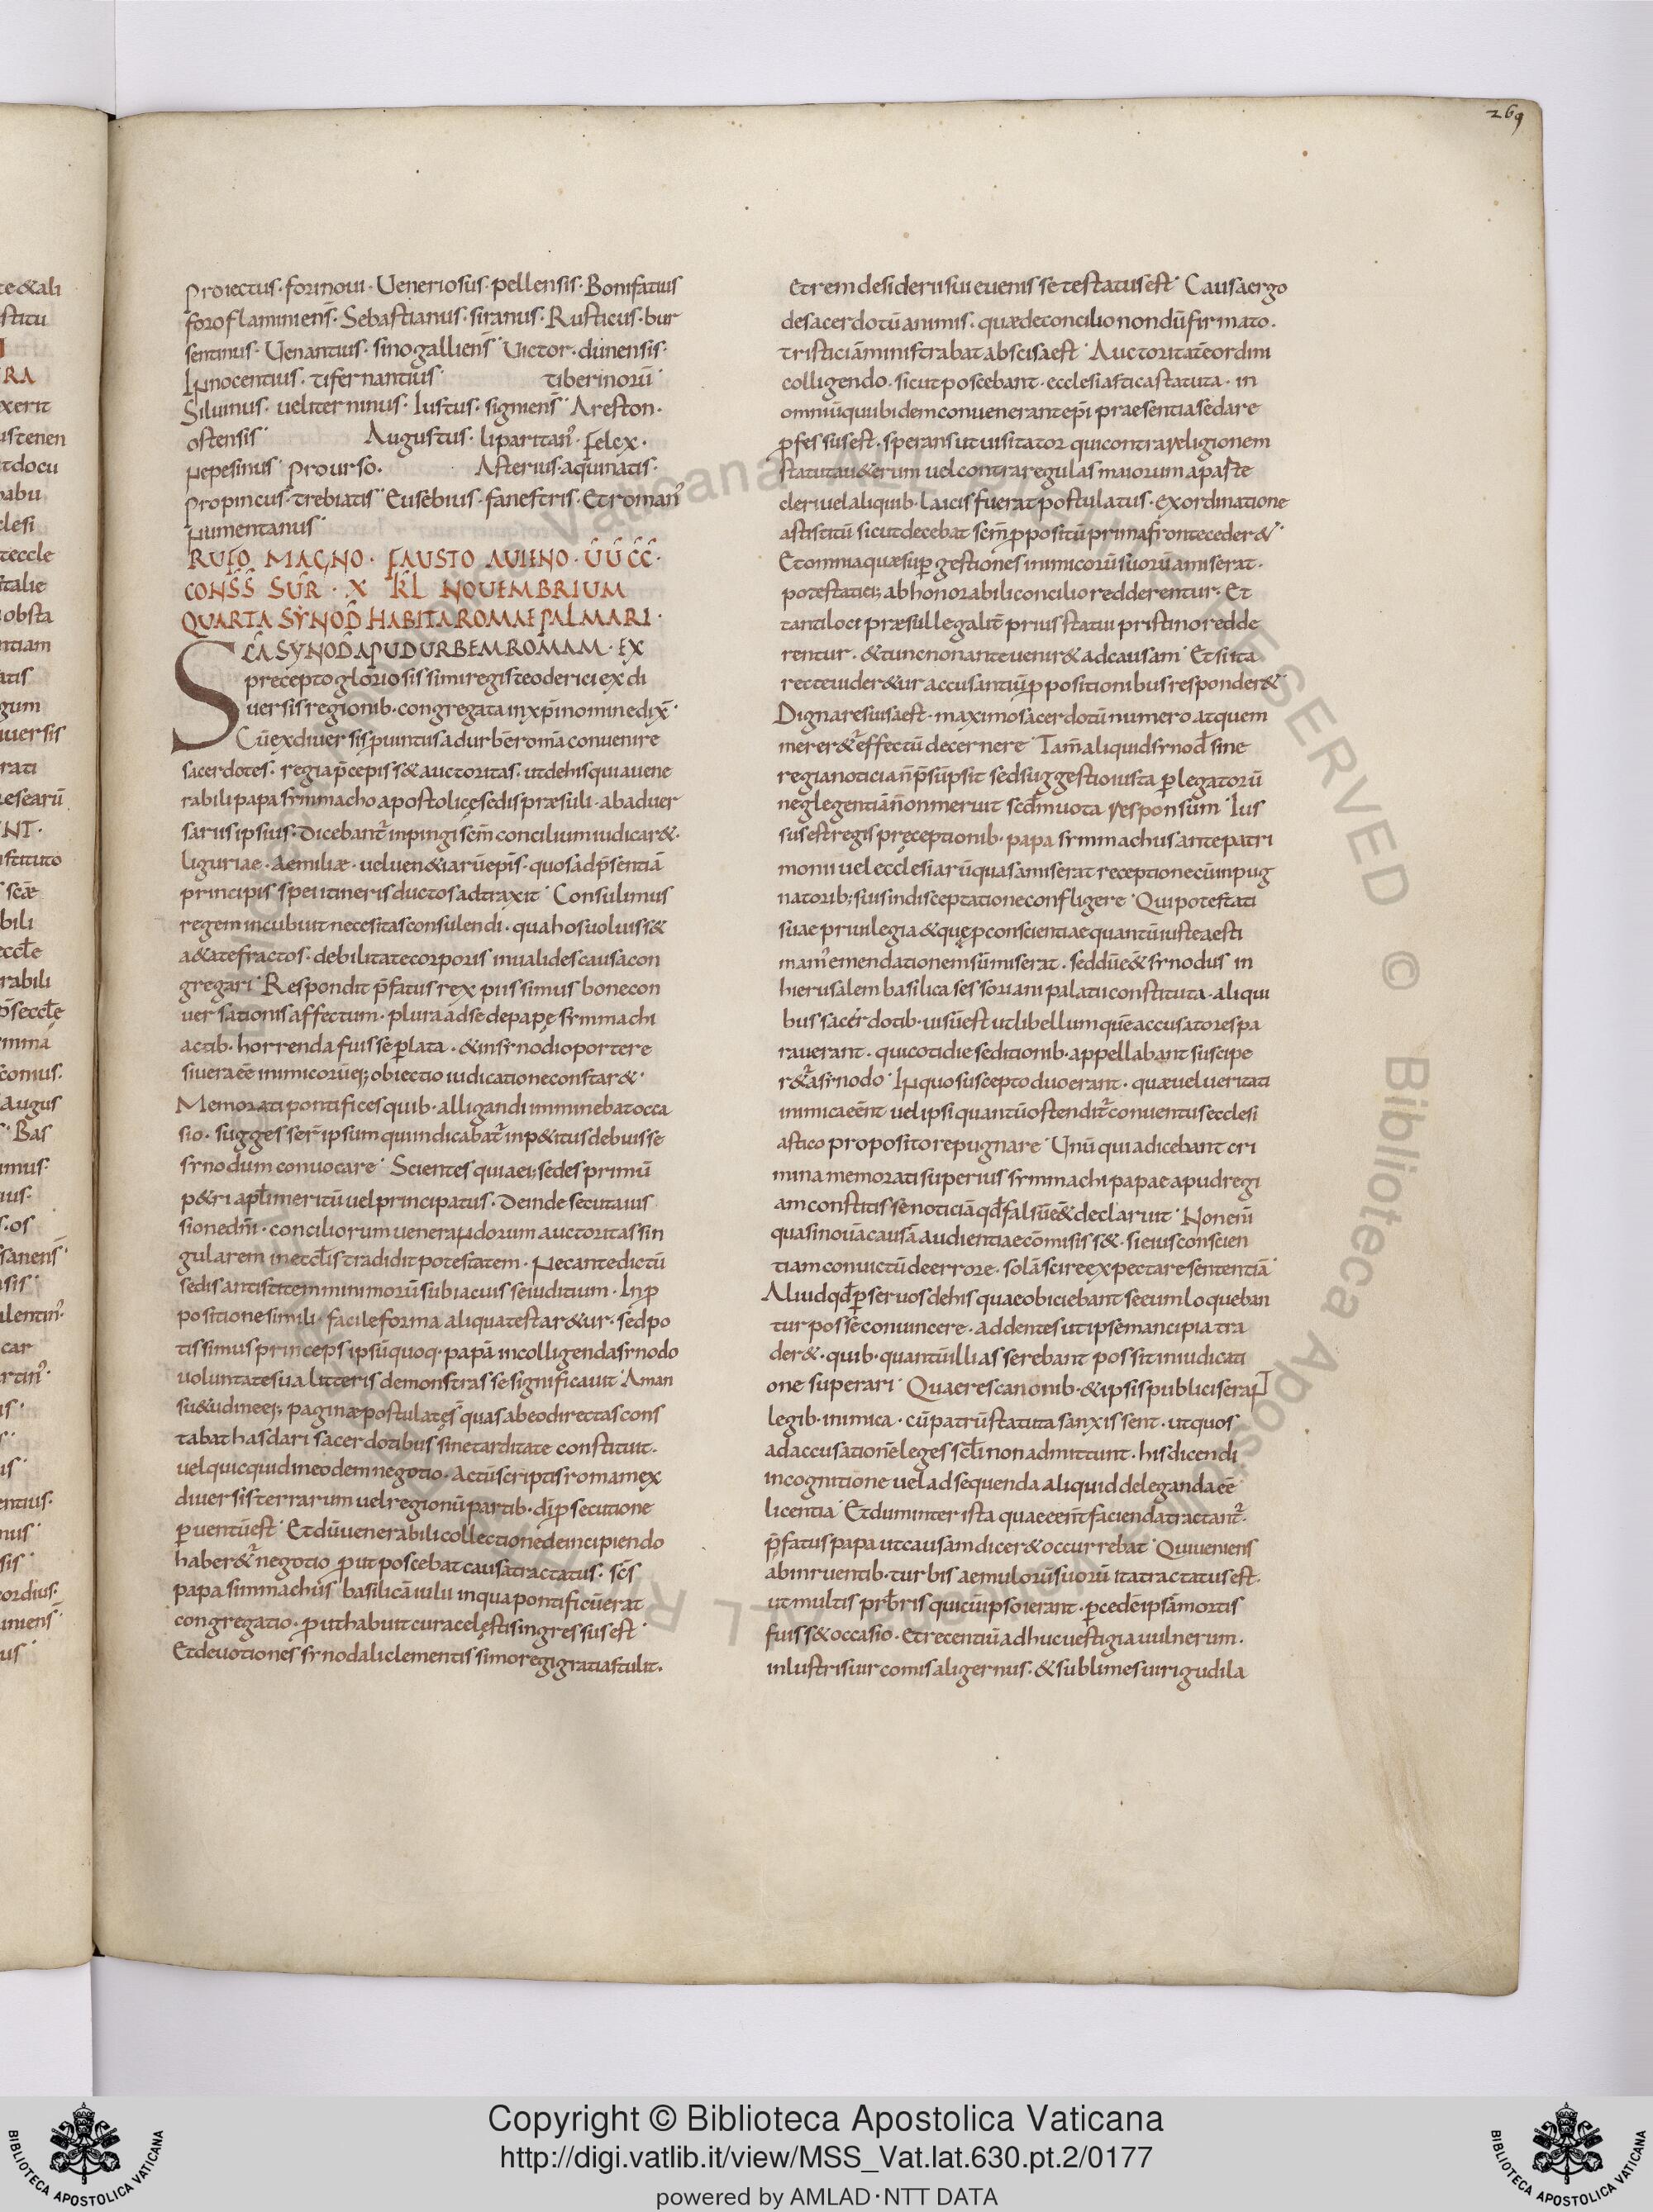 269
Proiectus· forinoui· Ueneriosus· pellensis· Bonifatius
foroflaminienś· Sebastianus· siranus· Rusticus· bur
sentinus· Uenantius· sinogalliens̄· Uictor· dunensis·
Innocentius· tifernantius· tiberinorū·
Siluinus· ueliterninus· Iustus· signiens̄· Areston·
ostensis· Augustus· liparitan̄· Felex·
Nepesinus· Prourso· Asterius· aquinatis·
Propincus· trebiatis· Eusebius· fanestris· Et roman̄
Numentanus·
RUFO MAGNO· FAUSTO AUIENO· ŪŪ C̄C̄·
CONS̄S̄ SŪR· X K̄L NOUEMBRIUM
QUARTA SYNOD̄ HABITA ROMAE PALMARI·
SC̄A SYNOD̄ APUD URBEM ROMAM· EX
precepto gloriosissimi regis teoderici ex di
uersis regionib· congregata in xp̄i nomine dix̄·
Cū ex diuersis puintiis ad urbē romā conuenire
sacerdotes· regia p̄cepiss& auctoritas· ut de his qui a uene
rabili papa symmacho apostolicę sedis præsuli· ab aduer
sariis ipsius· dicebant̄ inpingi sc̄m concilium iudicar&·
liguriae· aemiliæ· uel uen&iarū ep̄is· quos ad p̄sentiā
principis spei itineris ductos adtraxit· Consulimus
regem incubuit necesitas consulendi· qua hos uoluiss&
a&ate fractos· debilitate corporis inualides causa con
gregari· Respondit p̄fatus rex piissimus bone con
uersationis affectum· plura ad se de papę symmachi
actib· horrenda fuisse p̱lata· & in synodi oportere
si uera eē inimicorū eiꝰ obiectio iudicatione constar&·
Memorati pontifices quib· alligandi imminebat occa
sio· suggesser̄ ipsum qui indicabat̄ inp&itus debuisse
synodum conuocare· Scientes quia eiꝰ sedes primū
p&ri apl̄i meritū uel principatus· Deinde secuta uis
sione dn̄i· conciliorum uenerandorum auctoritas sin
gularem in eccl̄is tradidit potestatem· Nec ante dictū
sedis antistitem minimorū subiacuisse iuditium· In p̱
positione simili· facile forma aliqua testar&ur· sed po
tissimus princeps ipsū quoq· papā in colligenda synodo
uoluntate sua litteris demonstrasse significauit· A man
su&udine eiꝰ paginæ postulatę s̄ quas ab eo directas cons
tabat has dari sacerdotibus sine tarditate constituit·
uel quicquid in eodem negotio· actū scriptis romam ex
diuersis terrarum uel regionū partib· di p̱secutione
p̱uentū est· Et dū uenerabili collectione de incipiendo
haber&̄ negotio p̱ut poscebat causa tractatus· sc̄s
papa simmachus basilicā iulii in qua pontificū erat
congregatio· p̱ut habuit cura celęstis ingressus est·
Et deuotiones synodali clementissimo regi gratias tulit·
Et rem desiderii sui euenisse testatus est· Causa ergo
de sacerdotū animis· quæ de concilio nondū firmato·
tristiciā ministrabat abscisa est· Auctoritatē ordini
colligendo· sicut poscebant· ecclesiastica statuta· in
omniū qui ibidem conuenerant ep̄i praesentia se dare
p̱fessus est· sperans ut uisitator qui contra religionem
statuta u&erum uel contra regulas maiorum a paste
cleri uel aliquib· laicis fuerat postulatus· ex ordinatione
astistitū sicut decebat sc̄m p̱positū prima fronte ceder&·
Et omnia quæ sup̱ gestiones inimicorū suorū amiserat·
potestati eiꝰ ab honorabili concilio redderentur· Et
tanti loci præsul legalit̄ prius statui pristino redde
rentur· & tunc non ante uenir& ad causam· Et si ita
recte uider&ur accusantiū p̱positionibus responder&·
Digna res uisa est· maximo sacerdotū numero at quem
merer&̄ effectū decernere· Tam̄ aliquid synod̄ sine
regia noticia n̄ p̄sūpsit sed suggestio iusta p̱ legatorū
neglegentiā n̄ on meruit sc̄dm uota responsum· Ius
sus est regis pręceptionib· papa symmachus ante patri
monii uel ecclesiarū quas amiserat receptione cū inpug
natorib; suis in disceptatione confligere· Qui potestati
suae priuilegia & quę p̱ conscientiae quantū iuste aesti
mam̄ emendationem sūmiserat· sed dū e& synodus in
hierusalem basilica sessoriani palatii constituta· aliqui
bus sacerdotib· uisū est ut libellum quē accusatores pa
rauerant· qui cotidie seditionib· appellabant suscipe
r&̄ a synodo· In quo suscepto duo erant· quæ uel ueritati
inimica eēnt uel ipsi quantū ostendit̄ conuentus ecclesi
astico proposito repugnare· Unū quia dicebant cri
mina memorati superius symmachi papae apud regi
am constitisse noticiā qd̄ falsū eē & declaruit· Non eni̅
quasi nouā causā audientiae cōmisiss&· si eius conscien
tiam conuictū de errore· solā scire expectare sententiā·
Aliud qd̄ p̱ seruos de his quae obiciebant se eum loqueban
tur posse conuincere· addentes ut ipse mancipia tra
der&· quib· quantū illi asserebant possit in iudicati
one superari· Quae res canonib· & ipsis publicis erat
legib· inimica· cū patrū statuta sanxissent· ut quos
ad accusationē leges scl̄i non admittunt· his dicendi
in cognitione uel adsequenda aliquid deleganda eē
licentia· Et dum inter ista quae eēnt facienda tractant̄·
p̄fatus papa ut causam dicer& occurrebat· Qui ueniens
ab inruentib· turbis aemulorū suorū ita tractatus est·
ut multis prb̄ris qui cū ipso ierant· p̱ cedē ipsā mortis
fuiss& occasio· Et recentiū adhuc uestigia uulnerum·
inlustris uir comis aligernus· & sublimes uiri gudila
Copyright © Biblioteca Apostolica Vaticana
http://digi.vatlib.it/view/MSS_Vat.lat.630.pt.2/0177
powered by AMLAD·NTT DATA
BIBLIOTECA APOSTOLICA VATICANA
BIBLIOTECA APOSTOLICA VATICANA